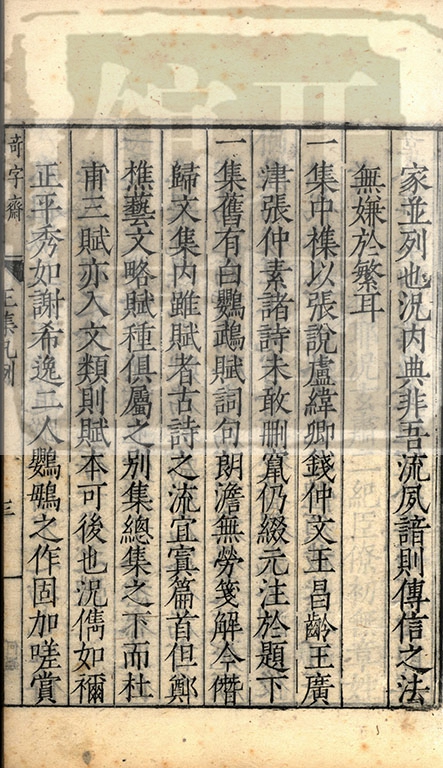 家並列也況内典非吾流夙諳則傳信之法
無嫌於繁耳
一集中襍以張說盧緯卿錢仲文王昌齡王廣
津張仲素諸詩未敢刪竄仍綴元注於題下
一集舊有白鸚鵡賦詞句朗澹無勞箋解今僭
歸文集內雖賦者古詩之流宜寘篇首但鄭
樵藝文略賦種俱屬之別集總集之下而杜
甫三賦亦入文類則賦本可後也況儁如禰
正平秀如謝希逸二人鸚鵡之作固加嗟賞
奇字齋
王集凡例
三